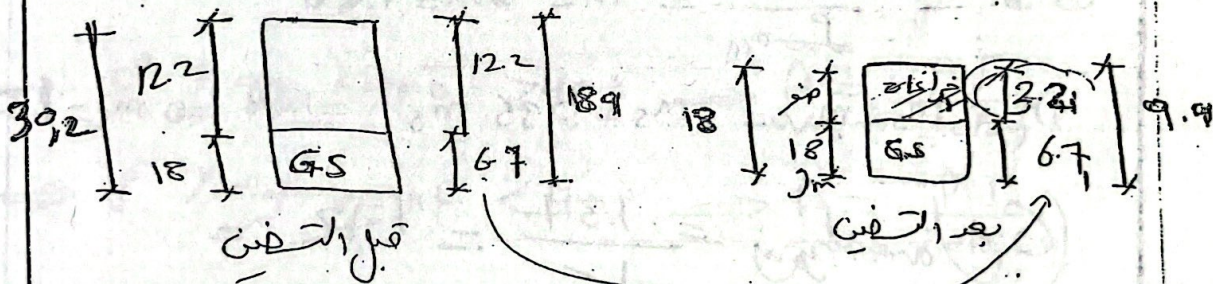 30,2
12.2
18
G.S
12.2
6.7
18.9
قبل التسخين
18
صفر
18
جم
فراغات
G.S
3.2
6.7
9.9
بعد التسخين